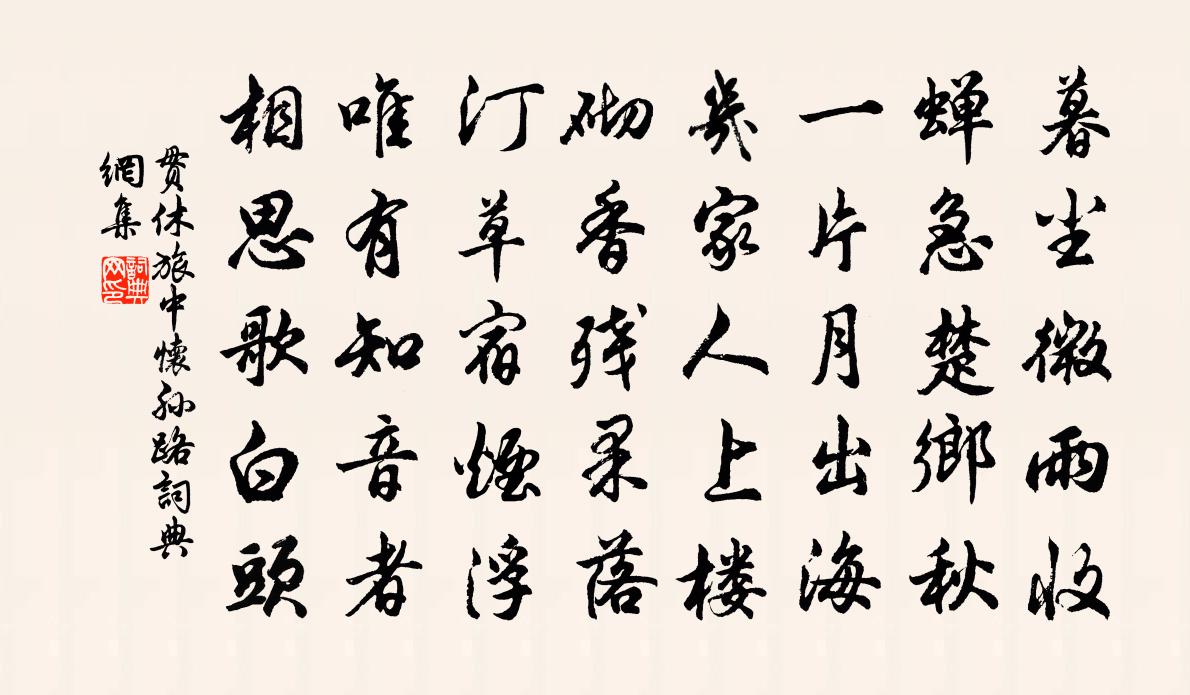 暮尘微雨收
蝉急楚鄉秋
一片月出海
幾家人上楼
砌香残果落
汀草宿煙浮
唯有知音者
相思歌白頭
貫休旅中懷孙路詞典
網集
詞典
网印